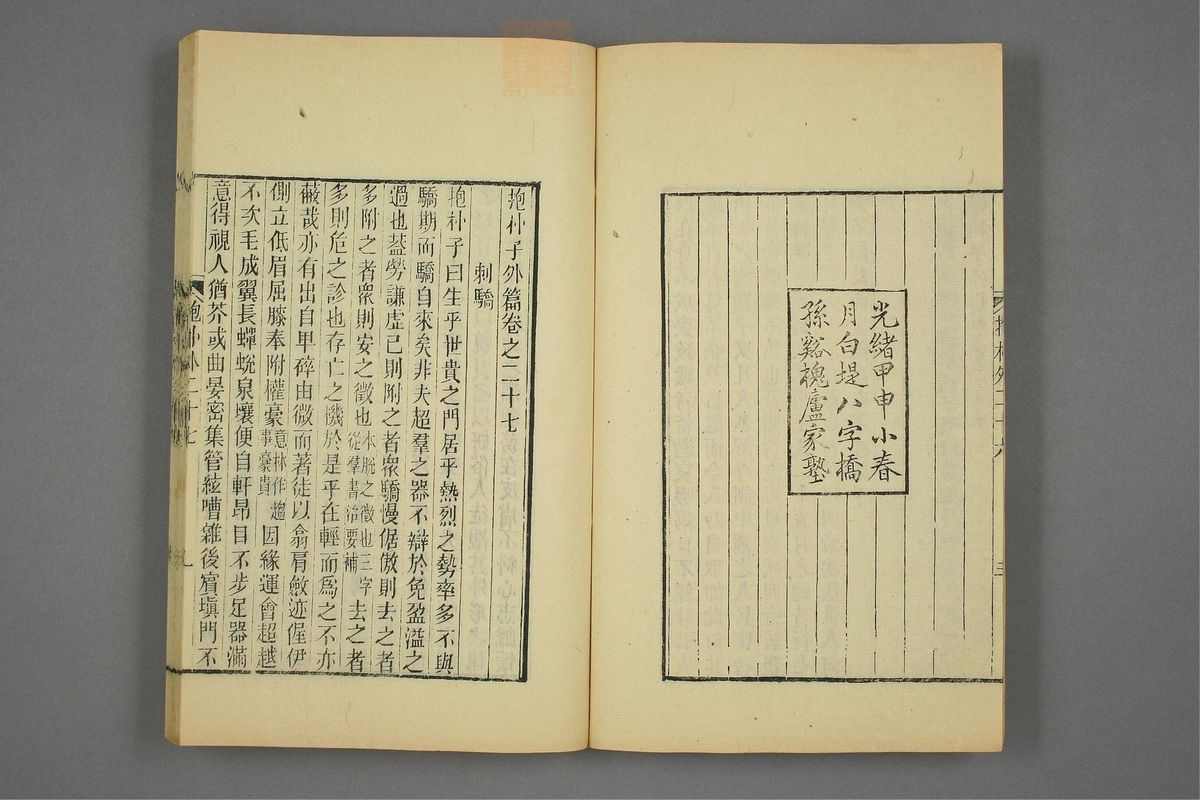 光緒甲申小春
月白堤八字橋
孫谿槐廬家塾
抱朴子外篇卷之二十七
刺驕
抱朴子曰生乎世貴之門居乎熱烈之勢率多不與
驕期而驕自來矣非夫超羣之器不辯於免盈溢之
過也葢勞謙虛己則附之者衆驕慢倨傲則去之者
多附之者衆則安之徵也本脫之徵也三字從羣書治要補去之者
多則危之診也存亡之機於是乎在輕而爲之不亦
蔽哉亦有出自卑碎由微而著徒以翕肩斂迹偓伊
側立低眉屈膝奉附權豪意林作趨事豪貴因緣運會超越
不次毛成翼長蟬蛻泉壤便自軒昂目不步足器滿
意得視人猶芥或曲晏密集管絃嘈雜後賓塡門不
抱朴外二十七